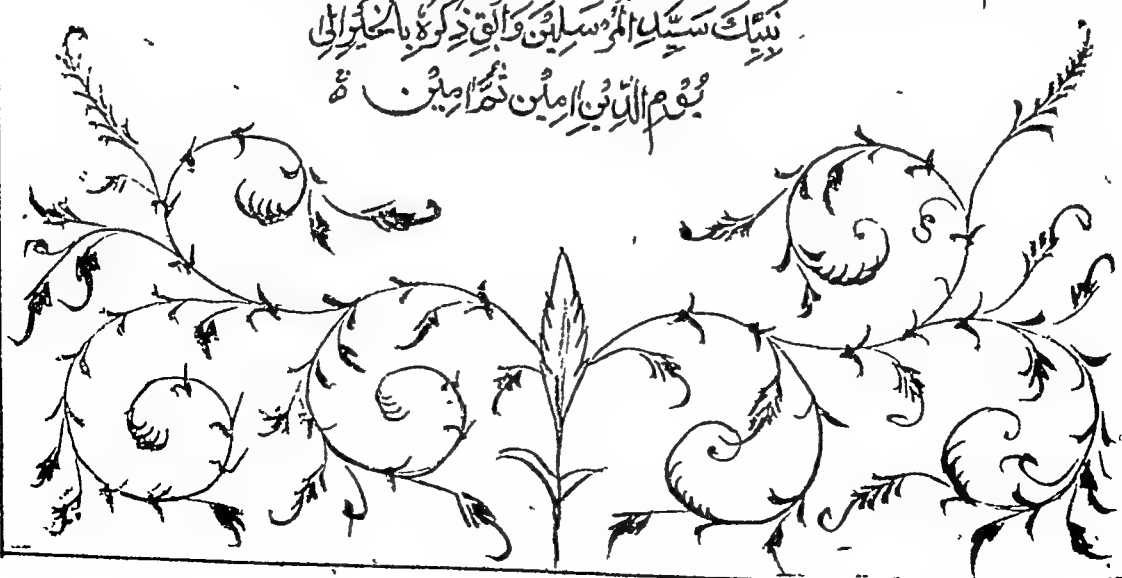 نَبِيِّكَ سَيِّدِ الْمُرْسَلِيْنَ وَابْقِ ذِكْرَهُ بِالْخَيْرِ اِلٰى
يَوْمِ الدِّيْنِ اٰمِيْن ثُمَّ اٰمِيْن